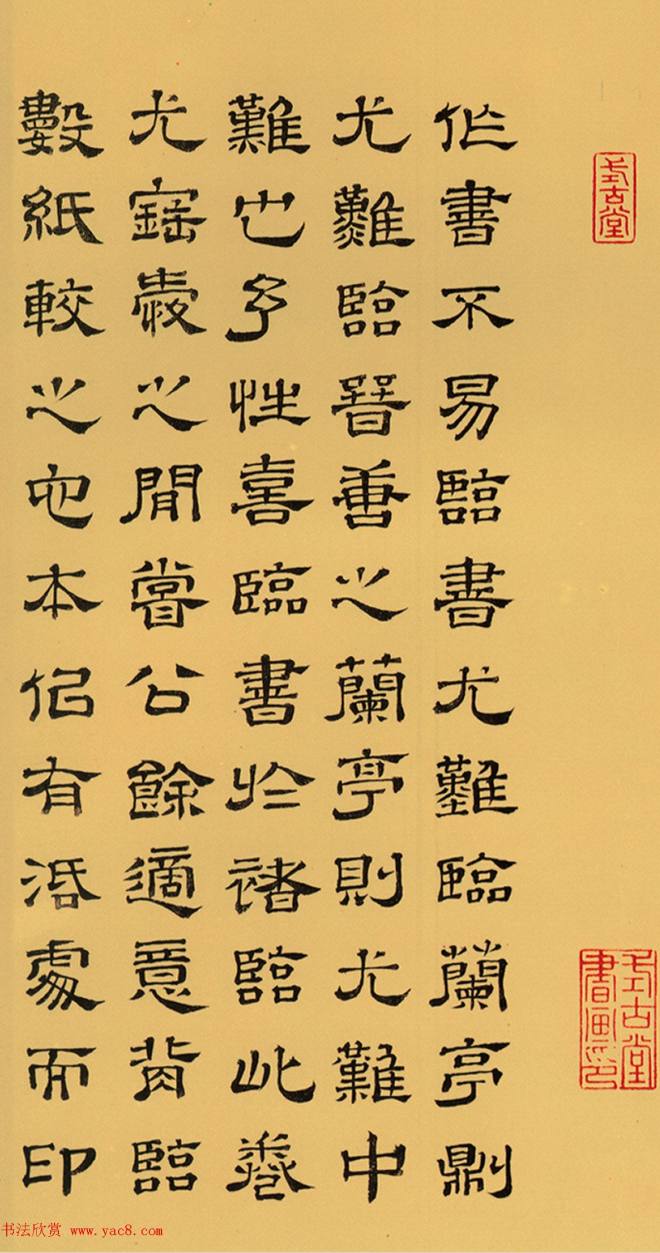 式古堂
式古堂書畫印
作書不易臨書尤難臨蘭亭則
尤難臨晉善之蘭亭則尤難中
難也予性喜臨書於褚臨此卷
尤寶愛之閒嘗公餘適意背臨
數紙較之它本似有活處而印
书法欣赏 www.yac8.com